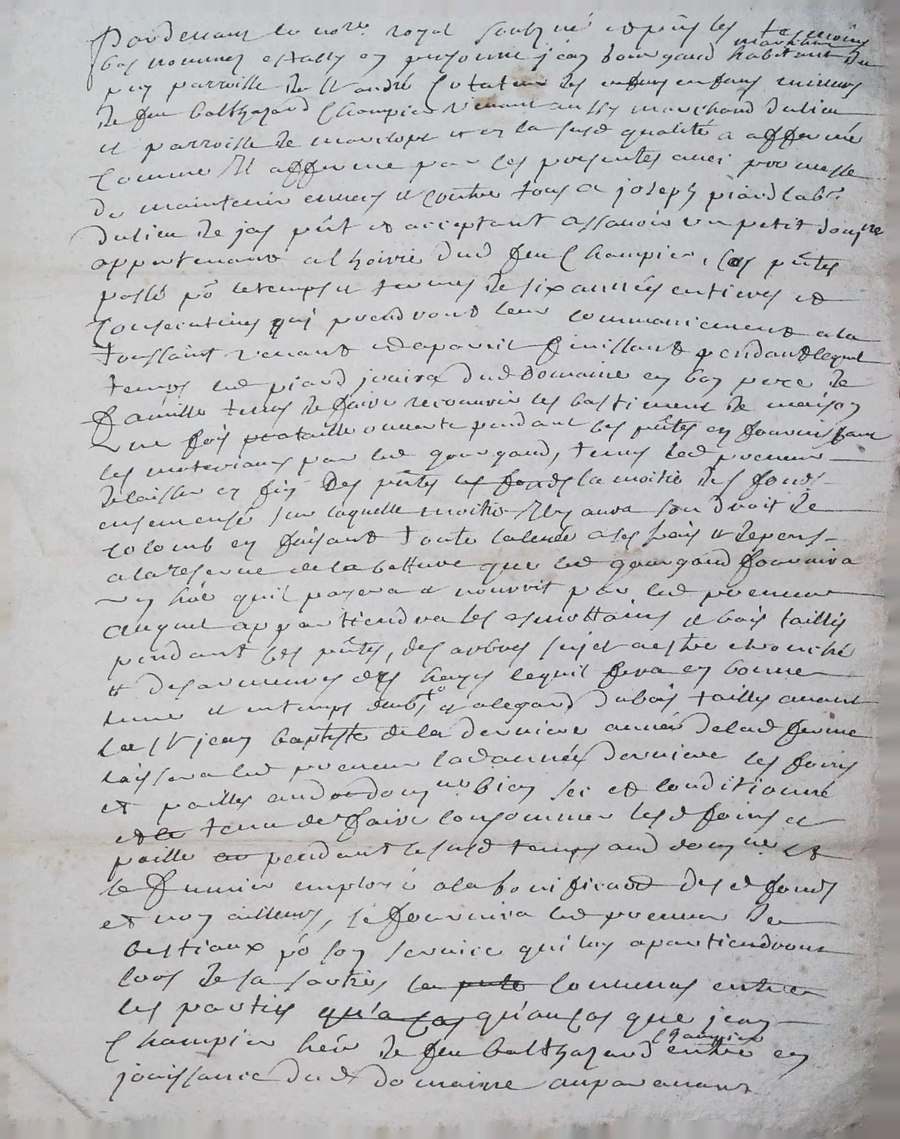 Pardevant le not.re royal soubz né et pñts les tesmoins
bas nommes estably en personne jean bourgand marchand habitant du
puy parroisse de St andré tutateur des enfans mineurs
de feu balthazard Champier vivant aussy marchand du lieu
et parroisse de et en la susd qualité a affermé
comme Il afferme par les presentes avec promesse
de maintenir envers et contre tous a joseph piard lab.r
du lieu de jas pñt et acceptant assavoir un petit dom.ne
appartenant a l hoirie dud feu Champier, Ces pñtes
passé p.r le temps et termes de six années entieres et
consecutives qui prendront leur commancement a la
toussaint venant et a pareil finissant pendant lequel
temps led piard jouira dud domaine en bon pere de
famille tenus de faire recouvrir les bastiments de maison
Une fois a taille ouverte pendant les pñtes en fournissant
les materiaux par led gourgand, tenus led preneur
delaisser en fin des pñtes les fonds la moitié des fonds
ensemensé sur laquelle moitié Il y aura son droit de
colomb en faisant toute la levée a ses frais et depens
a la reserve de la batture que led gourgand fournira
un hoe quil payera et nourrit par led preneur
auquel appartiendra les esmottains et bois taillis
pendant les pñtes, des arbres sujet a estre
et des des hayes lequel fera en bonne
et en temps deub et a legard du bois taillis avant
la st jean baptiste de la derniere année de lad ferme
laissera led preneur lad année derniere les foins
et pailles aud dom.ne bien sec et conditionné
et le tenu de faire consommer lesd foins et
paille au pendant le susd temps aud dom.ne et
le fumier employé a la bonification desd fonds
et non ailleurs, se fournira led preneur de
bestiaux p.r son service qui luy apartiendront
lors de sa sortie, convenus entre
les parties qu'a cas qu'au cas que jean
Champier heir de feu balthazard champier entre en
jouissance dud domaine auparavant